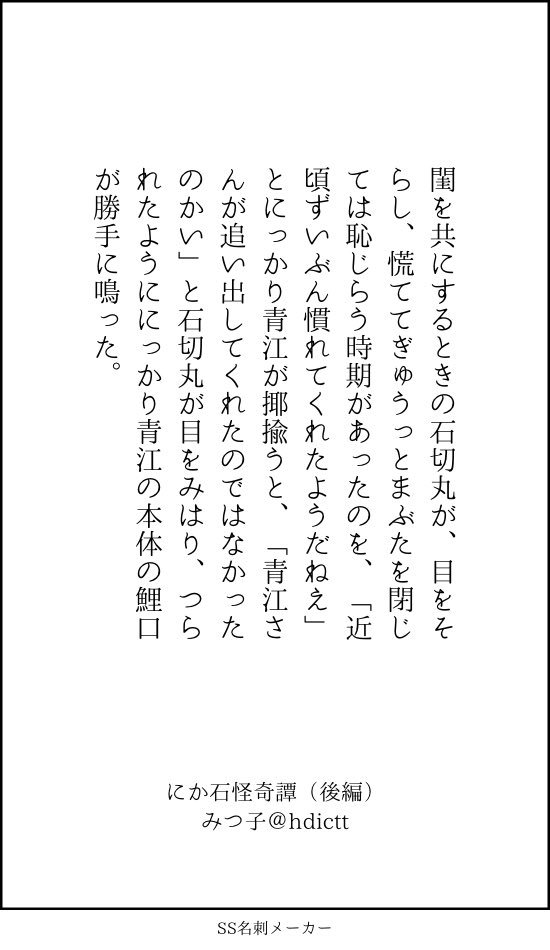 閨を共にするときの石切丸が、目をそ
らし、慌ててぎゅうっとまぶたを閉じ
ては恥じらう時期があったのを、「近
頃ずいぶん慣れてくれたようだねえ」
とにっかり青江が揶揄うと、「青江さ
んが追い出してくれたのではなかった
のかい」と石切丸が目をみはり、つら
れたようににっかり青江の本体の鯉口
が勝手に鳴った。
にか石怪奇譚（後編）
みつ子@hdictt
SS名刺メーカー